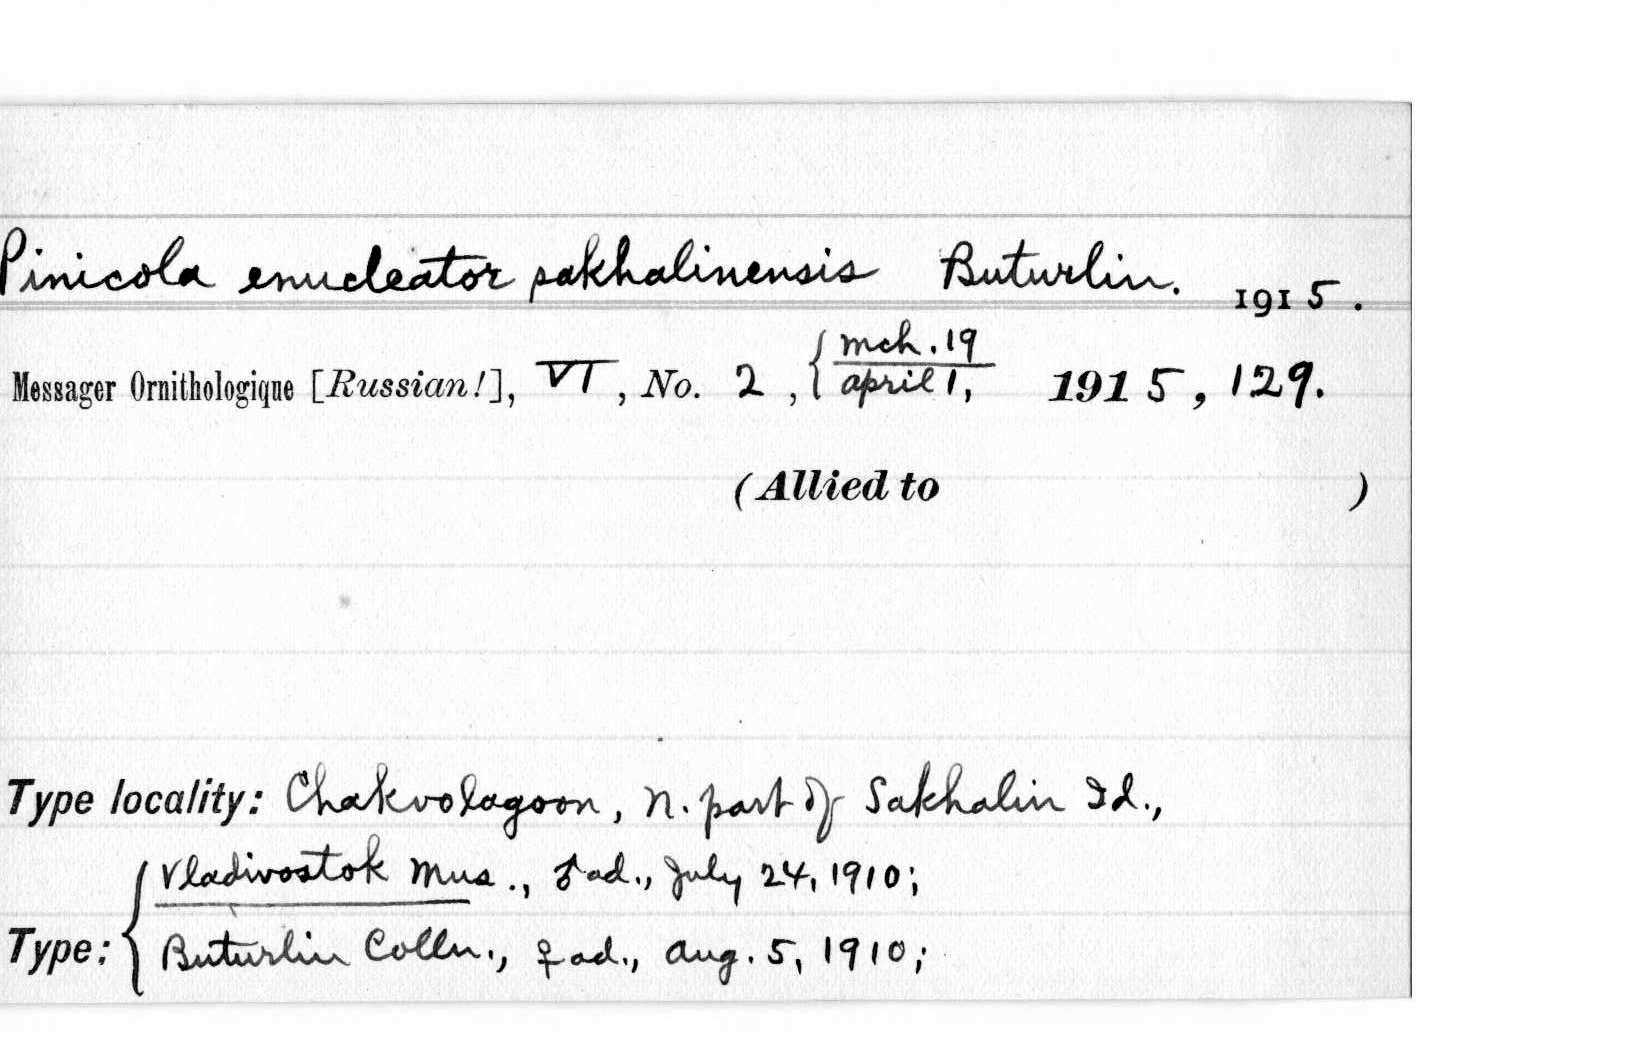 Pinicola enucleator sakhalinensis Buturlin. 1915.
Messager Ornithologique [Russian!], VI, No. 2, { mch. 19
april 1, 1915, 129.
(Allied to )
Type locality: Chakvolagoon, N. part of Sakhalin Id.,
Type: { Vladivostok Mus., ♂ ad., July 24, 1910;
Buturlin Colln., ♀ ad., Aug. 5, 1910;